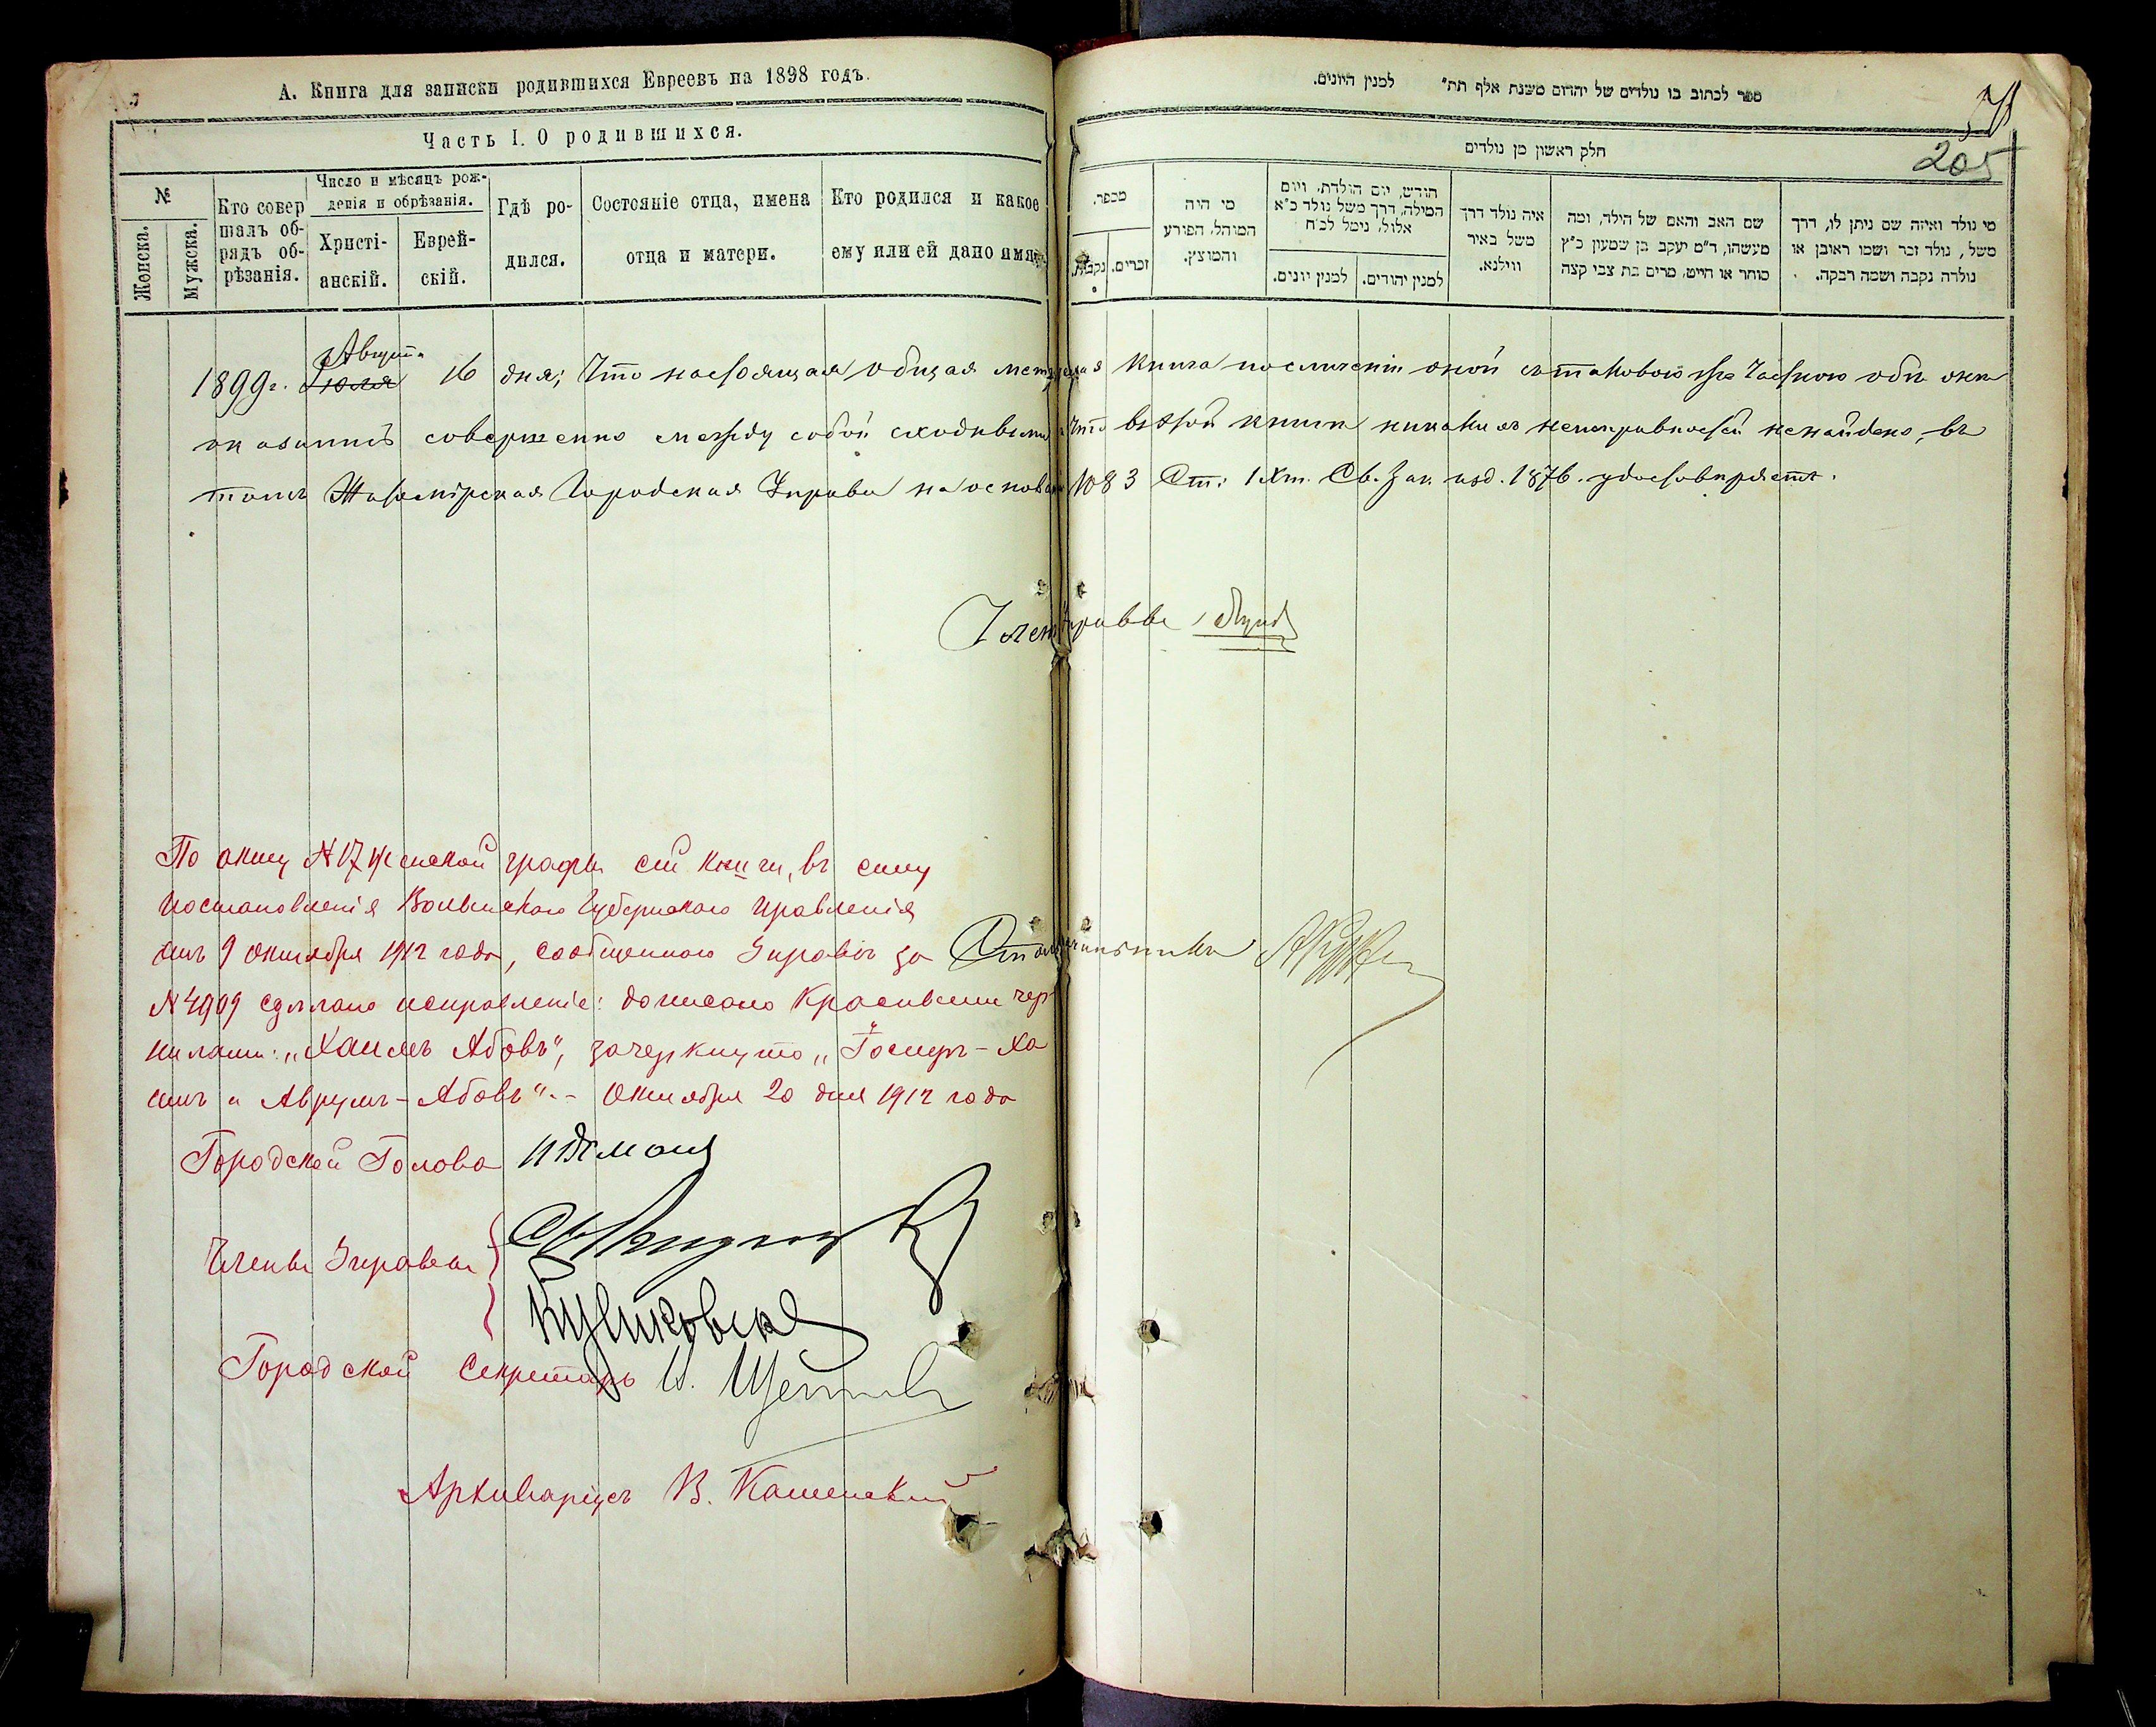 А. Книга для записки родившихся Евреевъ на 1898 годъ.
Часть I. О родившихся.
№
Женска.
Мужска.
Кто совер
шалъ об-
рядъ об-
рѣзанія.
Число и мѣсяцъ рож-
денія и обрѣзанія.
Христі-
анскій.
Еврей-
скій.
Гдѣ ро-
дился.
Состояніе отца, имена
отца и матери.
Кто родился и какое
ему или ей дано имя
ספר לכתוב בו נולדים של יהודים משנת אלף תת״ למנין היונים.
205
חלק ראשון מן נולדים
מספר.
נקבות.
זכרים.
מי היה
המוהל, הפורע
והמוצץ.
חודש, יום הולדת, ויום
המילה, דרך משל נולד כ״א
אלול, נימל לכ״ח
למנין יונים.
למנין יהודים.
איה נולד דרך
משל באיר
ווילנא.
שם האב והאם של הילד, ומה
מעשהו, ד״מ יעקב בן שמעון כ״ץ
סוחר או חייט, מרים בת צבי קצה
מי נולד ואיזה שם ניתן לו, דרך
משל, נולד זכר ושמו ראובן או
נולדה נקבה ושמה רבקה.
Августа
1899 г. Іюля 16 дня; Что настоящая общая метрическая книга по сличеніи оной съ таковою же Частною обѣ онѣ
оказались совершенно между собой сходными и что въ этой книгѣ никакихъ неисправностей ненайдено, въ
томъ Житомірская Городская Управа на основаніи 1083 Ст. IX т. Св. Зак. изд. 1876. удостовѣряетъ.
Членъ Управы
По акту № 17 женской графы сей книги, въ силу
постановленія Волынскаго Губернскаго Правленія
отъ 9 Октября 1912 года, сообщеннаго Управѣ за
№ 4909 сдѣлано исправленіе: дописано красными чер-
нилами: „Хаимъ Абовъ“, зачеркнуто „Іосифъ-Ха
имъ и Аврумъ-Абовъ“.- Октября 20 дня 1912 года
Столоначальникъ
Городской Голова
Члены Управы
Городской Секретарь
Архиваріусъ В. Каменскій